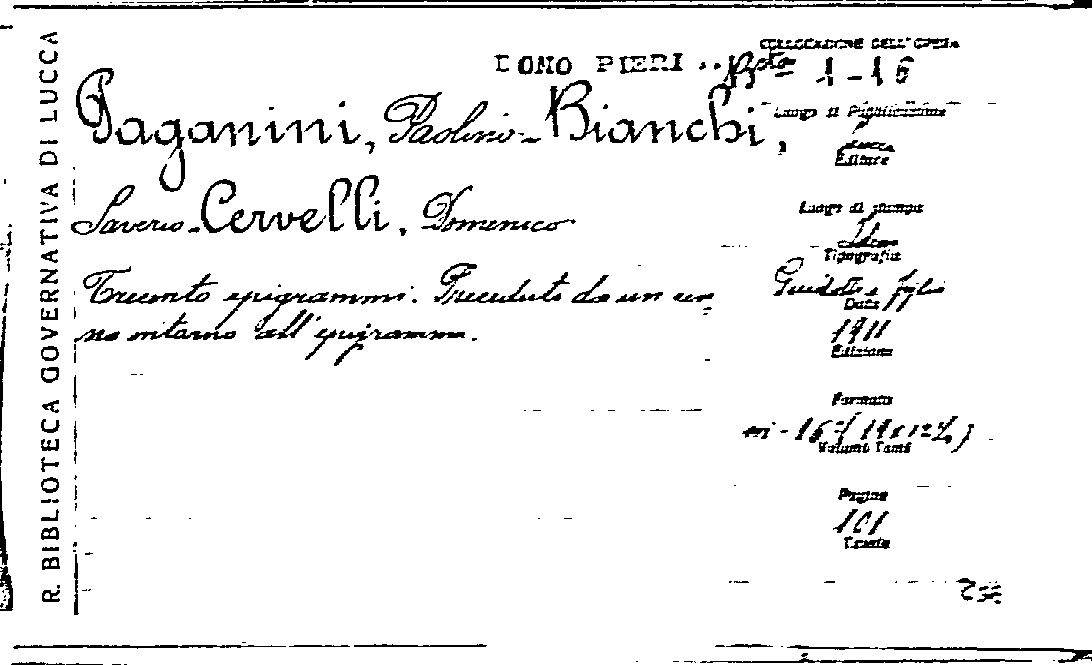 R. BIBLIOTECA GOVERNATIVA DI LUCCA
COLLOCAZIONE DELL'OPERA
DONO PIERI .. Bsta 1-16
Paganini, Paolino - Bianchi,
Luogo di Pubblicazione
Lucca
Editore
Saverio - Cervelli, Domenico
Luogo di stampa
Idem
Tipografia
Trecento epigrammi. Preceduto da un cen
Guidotti e figlio
Data
no intorno all'epigramma.
1911
Edizione
Formato
in-16° (19x12½)
Volumi Tomi
Pagine
101